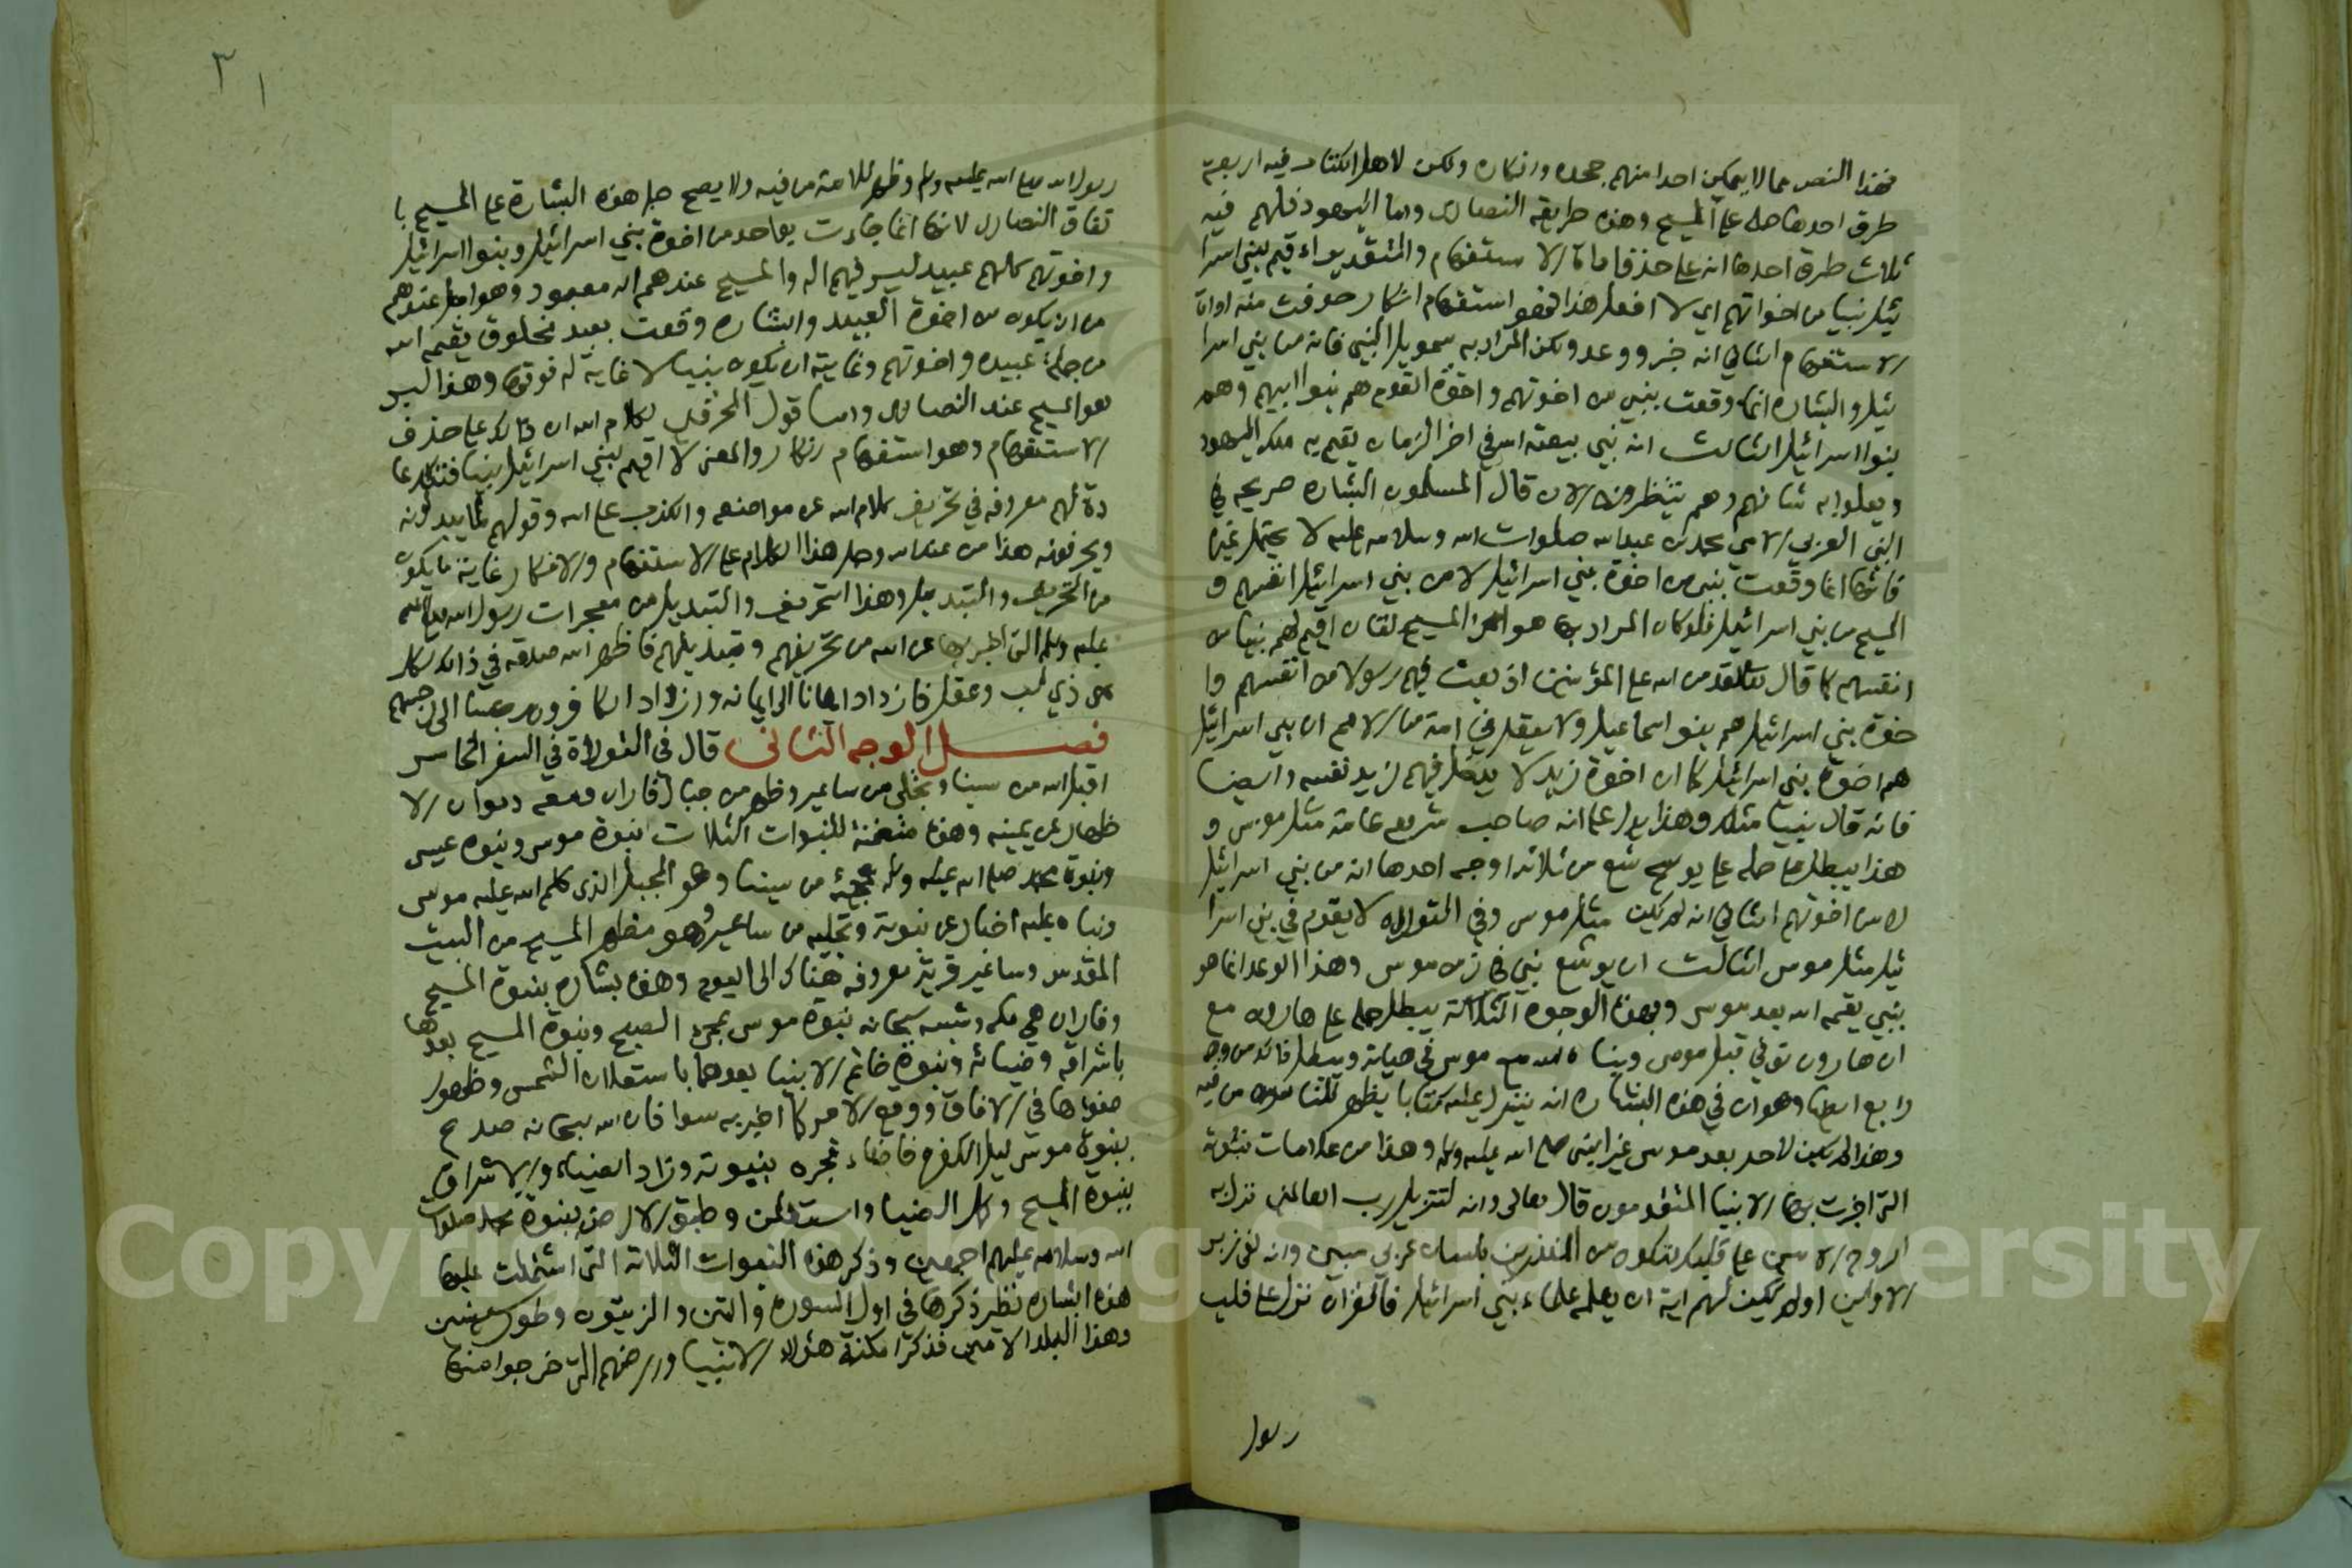 فهذا النص مما لا يمكن احدا منهم جحده وانكاره ولكن لاهل الكتاب فيه اربعة
طرق احدها حمله على المسيح وهذه طريقة النصارى واما اليهود فلهم فيه
ثلاث طرق احدها انه على حذف اداة الاستفهام والتقدير ااقيم لبني اسرا
ئيل نبيا من اخوتهم اي لا افعل هذا فهو استفهام انكار حذفت منه اداة
الاستفهام الثاني انه خبر ووعد ولكن المراد به شمويل النبي فانه من بني اسرا
ئيل والبشاره انما وقعت بنبي من اخوتهم واخوة القوم هم بنوا ابيهم وهم
بنوا اسرائيل الثالث انه نبي يبعثه الله في اخر الزمان يقيم به ملك اليهود
ويعلوا به شانهم وهم ينتظرونه الان قال المسلمون البشاره صريحه في
النبي العربي الامي محمد بن عبدالله صلوات الله وسلامه عليه لا يحتمل غيره
فانها انما وقعت بنبي من اخوة بني اسرائيل لا من بني اسرائيل انفسهم و
المسيح من بني اسرائيل فلو كان المراد بها هو المسيح لقال اقيم لهم نبيا من
انفسهم كما قال تعالى لقد من الله على المؤمنين اذ بعث فيهم رسولا من انفسهم وا
خوة بني اسرائيل هم بنو اسماعيل ولا يعقل في امة من الامم ان بني اسرائيل
هم اخوة بني اسرائيل كما ان اخوة زيد لا يدخل فيهم زيد نفسه وايضا
فانه قال نبيا مثلك وهذا يدل على انه صاحب شريعه عامة مثل موسى و
هذا يبطل حمله على يوشع من ثلاثة اوجه احدها انه من بني اسرائيل
لا من اخوتهم الثاني انه لم يكن مثل موسى وفي التوراه لا يقوم في بني اسرا
ئيل مثل موسى الثالث ان يوشع نبي في زمن موسى وهذا الوعد انما هو
بنبي يقيمه الله بعد موسى وبهذه الوجوه الثلاثة يبطل حمله على هارون مع
ان هارون توفي قبل موسى ونباه الله مع موسى في حياته ويبطل ذلك من وجه
رابع ايضا وهو ان في هذه البشاره انه ينزل عليه كتابا يظهر للناس من فيه
وهذا لم يكن لاحد بعد موسى غير النبي صلى الله عليه وسلم وهذا من علامات نبوته
التي اخبرت بها الانبيا المتقدمون قال تعالى وانه لتنزيل رب العالمين نزل به
الروح الامين على قلبك لتكون من المنذرين بلسان عربي مبين وانه لفي زبر
الاولين اولم يكن لهم اية ان يعلمه علماء بني اسرائيل فالقران نزل على قلب
رسول
٣١
رسول الله صلى الله عليه وسلم وظهر للامة من فيه ولا يصح حمل هذه البشارة على المسيح با
تفاق النصارى لانها انما جاءت بواحد من اخوة بني اسرائيل وبنوا اسرائيل
واخوتهم كلهم عبيد ليس فيهم اله والمسيح عندهم اله معبود وهو اجل عندهم
من ان يكون من اخوة العبيد والبشاره وقعت بعبد مخلوق يقيمه الله
من جملة عبيده واخوتهم وغايته ان يكون نبيا لا غاية له فوقها وهذا ليس
هو المسيح عند النصارى واما قول المحرفين لكلام الله ان ذلك على حذف
الاستفهام وهو استفهام انكار والمعنى لا اقيم لبني اسرائيل نبيا فتلك عا
دة لهم معروفه في تحريف كلام الله عن مواضعه والكذب على الله وقولهم لما يبدلونه
ويحرفونه هذا من عند الله وحمل هذا الكلام على الاستفهام والانكار غاية ما يكون
من التحريف والتبديل وهذا التحريف والتبديل من معجزات رسول الله صلى الله
عليه وسلم التي اخبر بها عن الله من تحريفهم وتبديلهم فاظهر الله صدقه في ذلك لكل
ذي لب وعقل فازداد ايمانا الى ايمانه وازداد الكافرون رجسا الى رجسهم
فصل الوجه الثاني قال في التوراة في السفر الخامس
اقبل الله من سينا وتجلى من ساعير وظهر من جبال فاران ومعه ربوات الا
ظهار عن يمينه وهذه متضمنة للنبوات الثلاث نبوة موسى ونبوه عيسى
ونبوة محمد صلى الله عليه وسلم فمجيئه من سينا وهو الجبل الذي كلم الله عليه موسى
ونباه عليه اخبار عن نبوته وتجليه من ساعير وهو مظهر المسيح من البيت
المقدس وساعير قرية معروفه هناك الى اليوم وهذه بشاره بنبوة المسيح
وفاران هي مكه وشبه سبحانه نبوة موسى بمجئ الصبح ونبوة المسيح بعدها
باشراقه وضيائه ونبوة خاتم الانبيا بعدهما باستعلان الشمس وظهور
ضوئها في الافاق ووقع الامر كما اخبر به سوا فان الله سبحانه صدع
بنبوة موسى ليل الكفر فاضاء فجره بنبوته وزاد الضياء والاشراق
بنبوة المسيح وكمل الضيا واستعلن وطبق الارض بنبوة محمد صلوات
الله وسلامه عليهم اجمعين وذكر هذه النبوات الثلاثة التي اشتملت عليها
هذه البشاره نظير ذكرها في اول السورة والتين والزيتون وطور سينين
وهذا البلد الامين فذكر امكنة هؤلاء الانبيا وارضهم التي خرجوا منها
Copyright © King Saud University